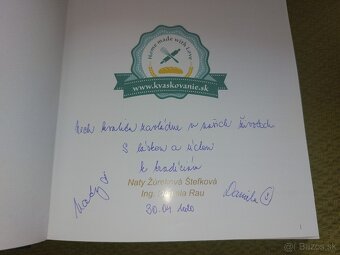 Home made with Love
www.kvaskovanie.sk
Nech kvalita zavládne v našich životoch
S láskou a úctou
k tradíciám
Naty Žúreková Štefková
Ing. Daniela Rau
Naty
Daniela
30.04 2020
1
Bazos.sk